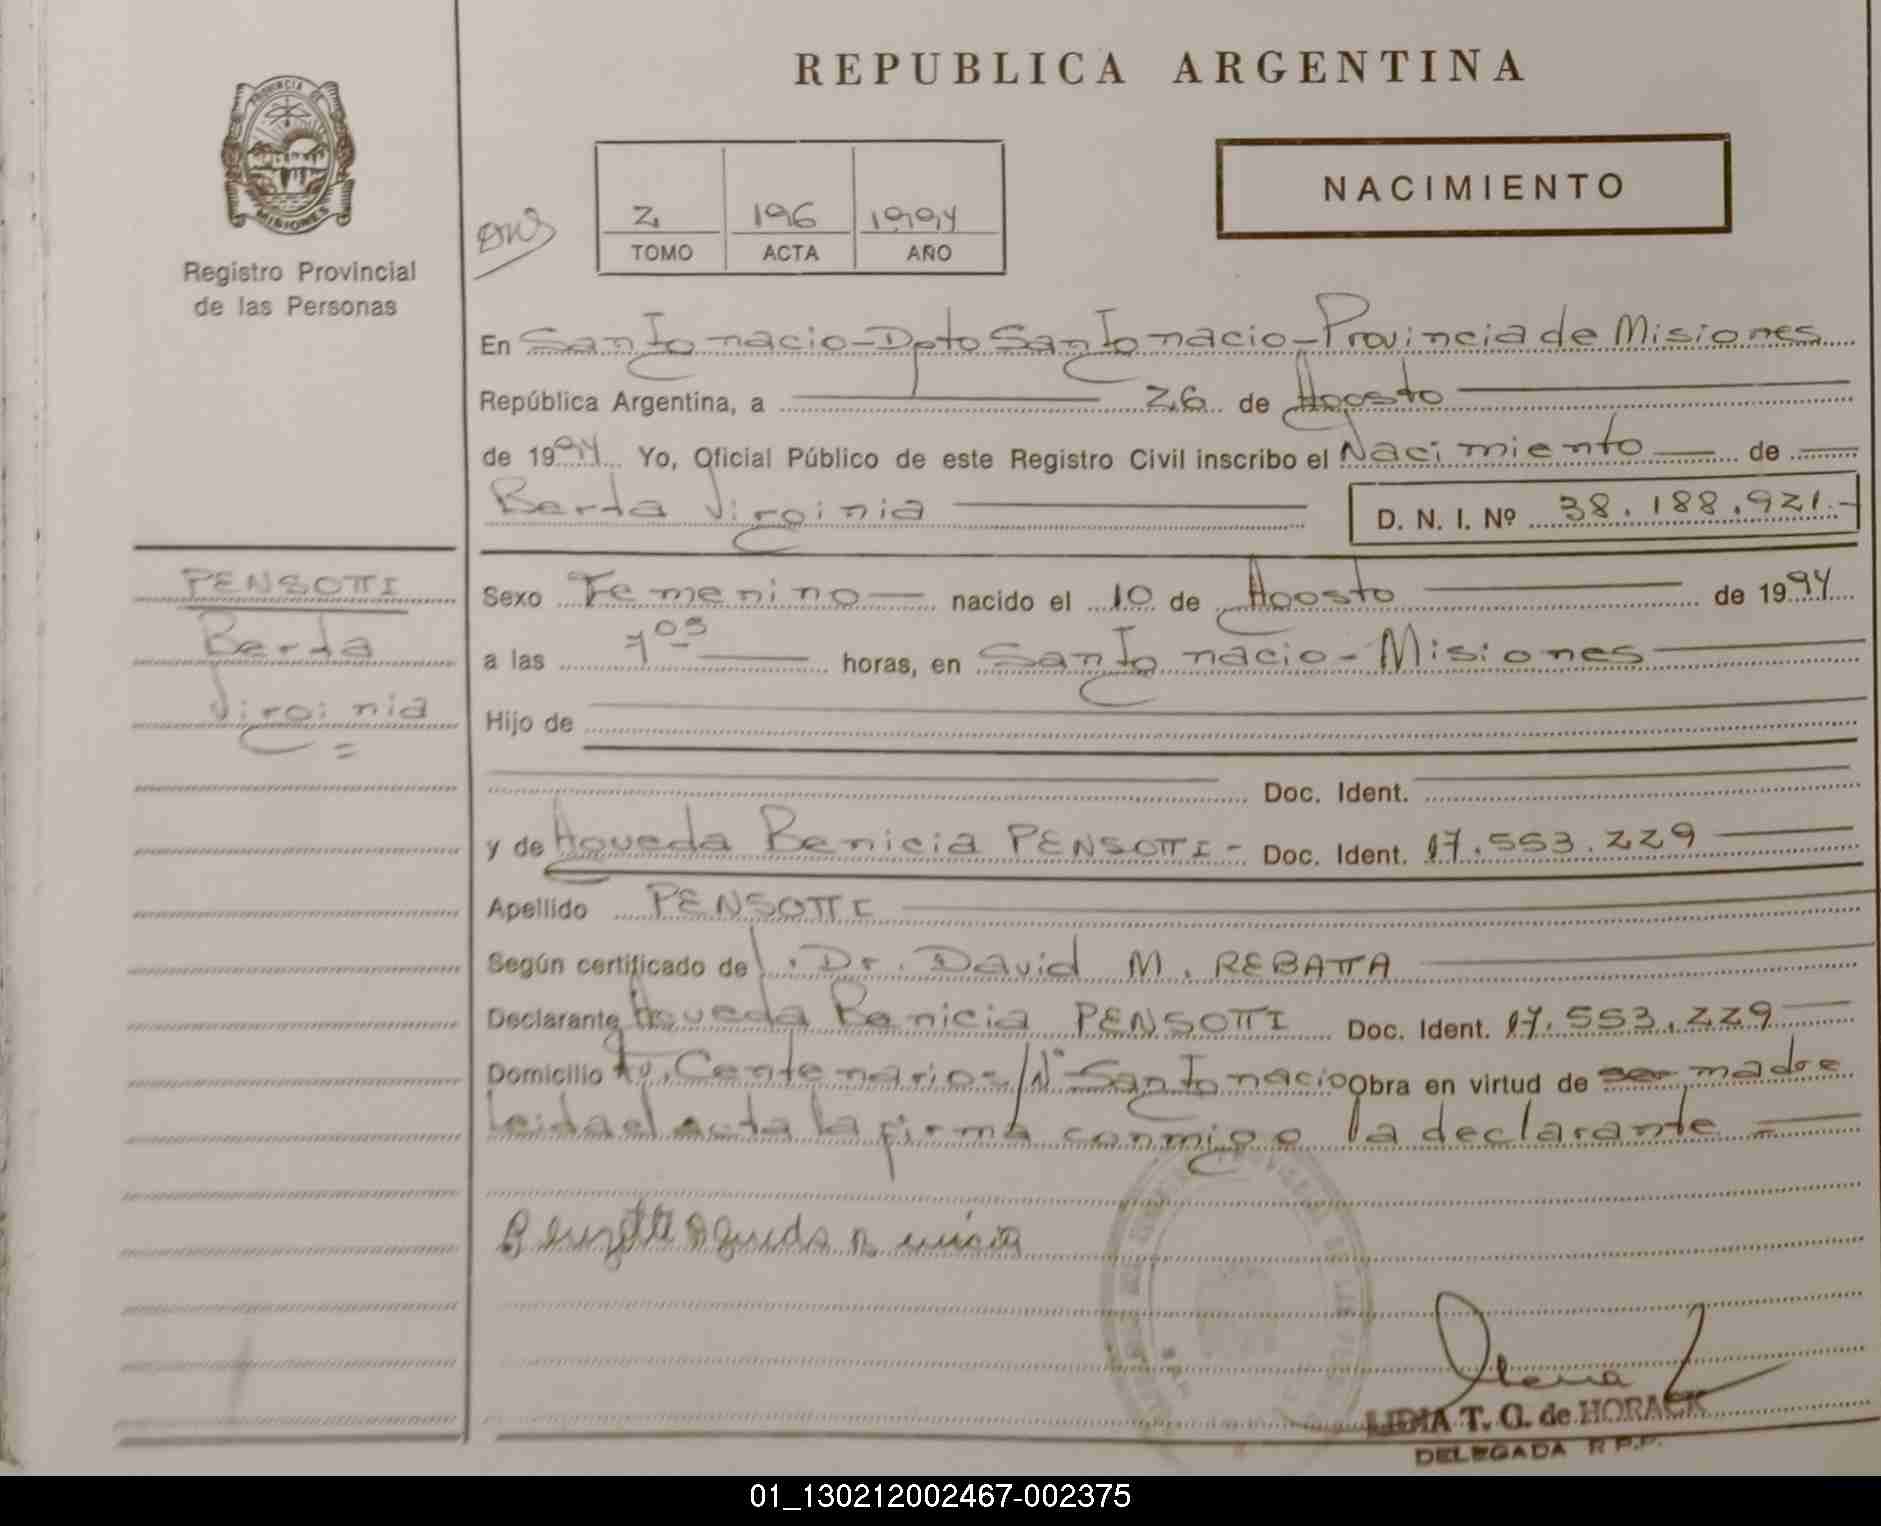 REPUBLICA ARGENTINA
PROVINCIA DE
MISIONES
Registro Provincial
de las Personas
2 196 1994
TOMO ACTA AÑO
NACIMIENTO
En San Ignacio - Dpto San Ignacio - Provincia de Misiones
República Argentina, a 26 de Agosto
de 1994 Yo, Oficial Público de este Registro Civil inscribo el Nacimiento de
Berta Virginia D. N. I. Nº 38.188.921.-
PENSOTTI
Berta
Virginia =
Sexo Femenino nacido el 10 de Agosto de 1994
a las 7 05 horas, en San Ignacio - Misiones
Hijo de
Doc. Ident.
y de Agueda Benicia PENSOTTI - Doc. Ident. 17.553.229
Apellido PENSOTTI
Según certificado de Dr. David M. REBATTA
Declarante Agueda Benicia PENSOTTI Doc. Ident. 17.553.229
Domicilio Av. Centenario s/Nº San Ignacio Obra en virtud de ser madre
Leida el acta la firma conmigo la declarante =
Agueda
LIDIA T. O. de HORACK
DELEGADA R P.P.
01_130212002467-002375